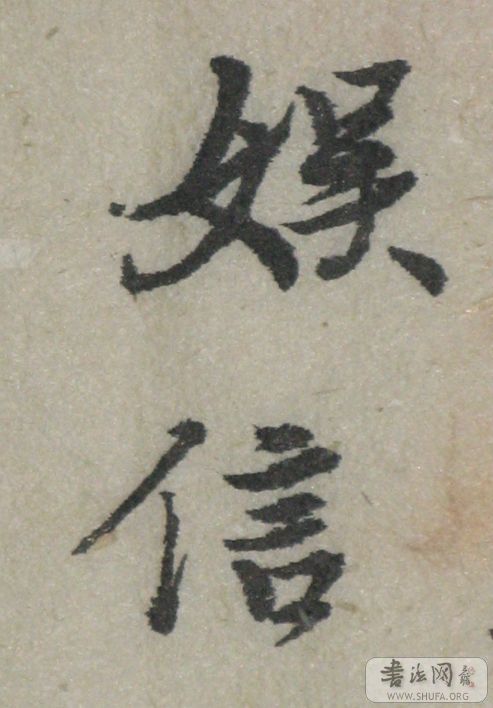 娱信
書法网
WWW.SHUFA.ORG